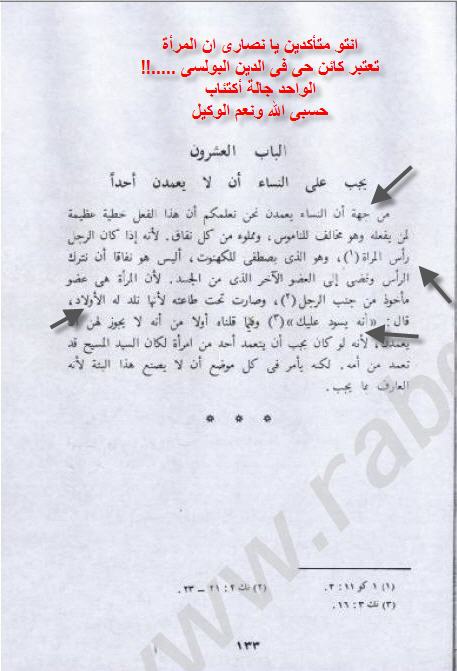 انتو متأكدين يا نصارى ان المرأة
تعتبر كائن حى فى الدين البولسى .....!!
الواحد جالة أكتئاب
حسبى الله ونعم الوكيل
الباب العشرون
يجب على النساء أن لا يعمدن أحداً
من جهة أن النساء يعمدن نحن نعلمكم أن هذا الفعل خطية عظيمة
لمن يفعله وهو مخالف للناموس، ومملوء من كل نفاق. لأنه إذا كان الرجل
رأس المراة (١)، وهو الذى يصطفى للكهنوت، أليس هو نفاقا أن نترك
الرأس ونمضى إلى العضو الآخر الذى من الجسد. لأن المرأة هى عضو
مأخوذ من جنب الرجل (٢)، وصارت تحت طاعته لأنها تلد له الأولاد،
قال: «أنه يسود عليك» (٣) وفيما قلناه أولا من أنه لا يجوز لهن أن
يعمدن، لأنه لو كان يجب أن يتعمد أحد من امرأة لكان السيد المسيح قد
تعمد من أمه. لكنه يأمر فى كل موضع أن لا يصنع هذا البتة لأنه
العارف بما يجب.
* * *
(١) ١ كو ١١: ٣. (٢) تك ٢: ٢١ – ٢٣.
(٣) تك ٣: ١٦.
١٣٣
www.rab